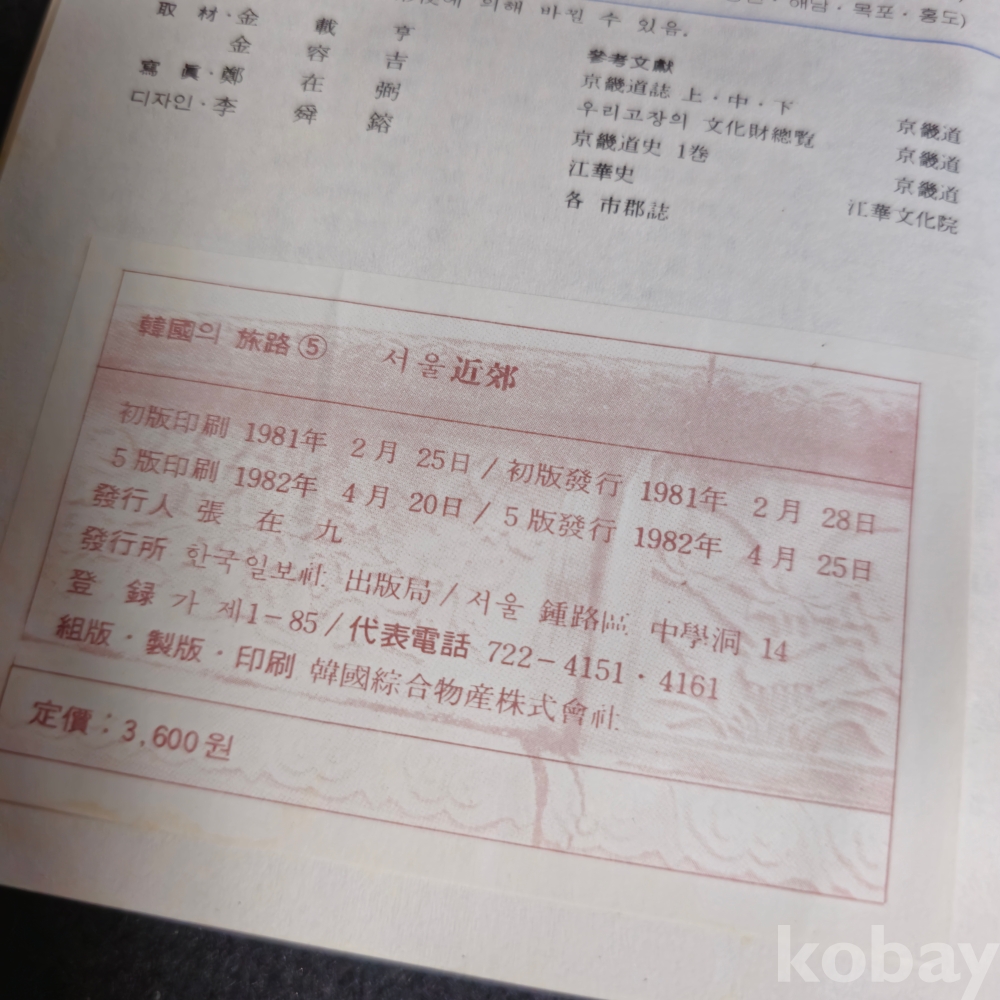 해남·목포·홍도)
에 의해 바뀔 수 있음.
取材·金載亨
金容吉
寫眞·鄭在弼
디자인·李舜鎔
參考文獻
京畿道誌 上·中·下 京畿道
우리고장의 文化財總覽 京畿道
京畿道史 1卷 京畿道
江華史 江華文化院
各 市郡誌
韓國의 旅路⑤ 서울近郊
初版印刷 1981年 2月 25日/初版發行 1981年 2月 28日
5版印刷 1982年 4月 20日/5版發行 1982年 4月 25日
發行人 張在九
發行所 한국일보社 出版局/서울 鍾路區 中學洞 14
登錄 가 제1-85/代表電話 722-4151·4161
組版·製版·印刷 韓國綜合物産株式會社
定價:3,600원
kobay